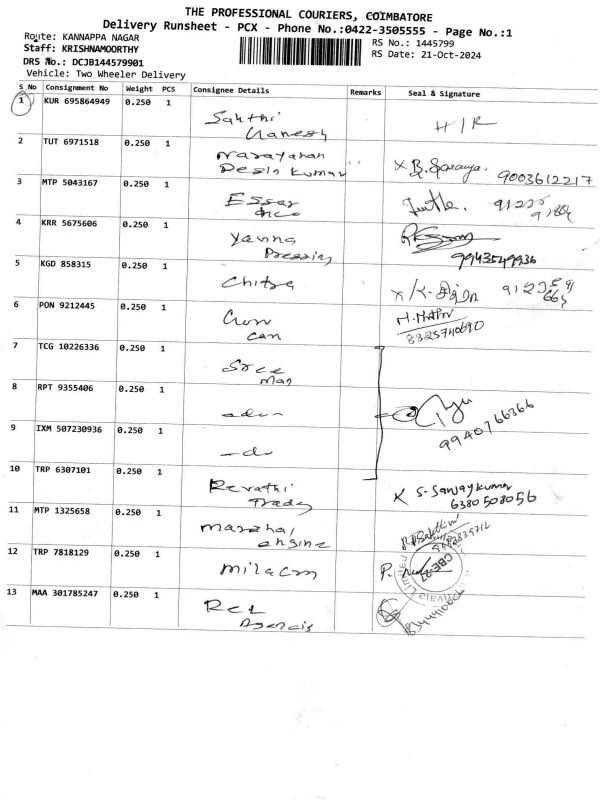 THE PROFESSIONAL COURIERS, COIMBATORE
Delivery Runsheet - PCX - Phone No.:0422-3505555 - Page No.:1
Route: KANNAPPA NAGAR
RS No.: 1445799
Staff: KRISHNAMOORTHY
RS Date: 21-Oct-2024
DRS No.: DCJB144579901
Vehicle: Two Wheeler Delivery
S No Consignment No Weight PCS Consignee Details Remarks Seal & Signature
1 KUR 695864949 0.250 1 Sakthi
Ganesh
H/R
2 TUT 6971518 0.250 1 Narayanan
Desin Kumar
9003612217
3 MTP 5043167 0.250 1 Essar
4 KRR 5675606 0.250 1
Pressing
9943549936
5 KGD 858315 0.250 1 Chitra
6 PON 9212445 0.250 1
Can
8825740690
7 TCG 10226336 0.250 1 Sree
Man
8 RPT 9355406 0.250 1 -do-
9940766366
9 IXM 507230936 0.250 1 -do
10 TRP 6307101 0.250 1 Revathi
S-Sanjaykumar
6380508056
11 MTP 1325658 0.250 1
engine
12 TRP 7818129 0.250 1 Milacron
CBE-27
13 MAA 301785247 0.250 1
Agencis